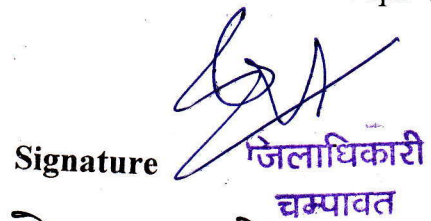 Signature
जिलाधिकारी
चम्पावत